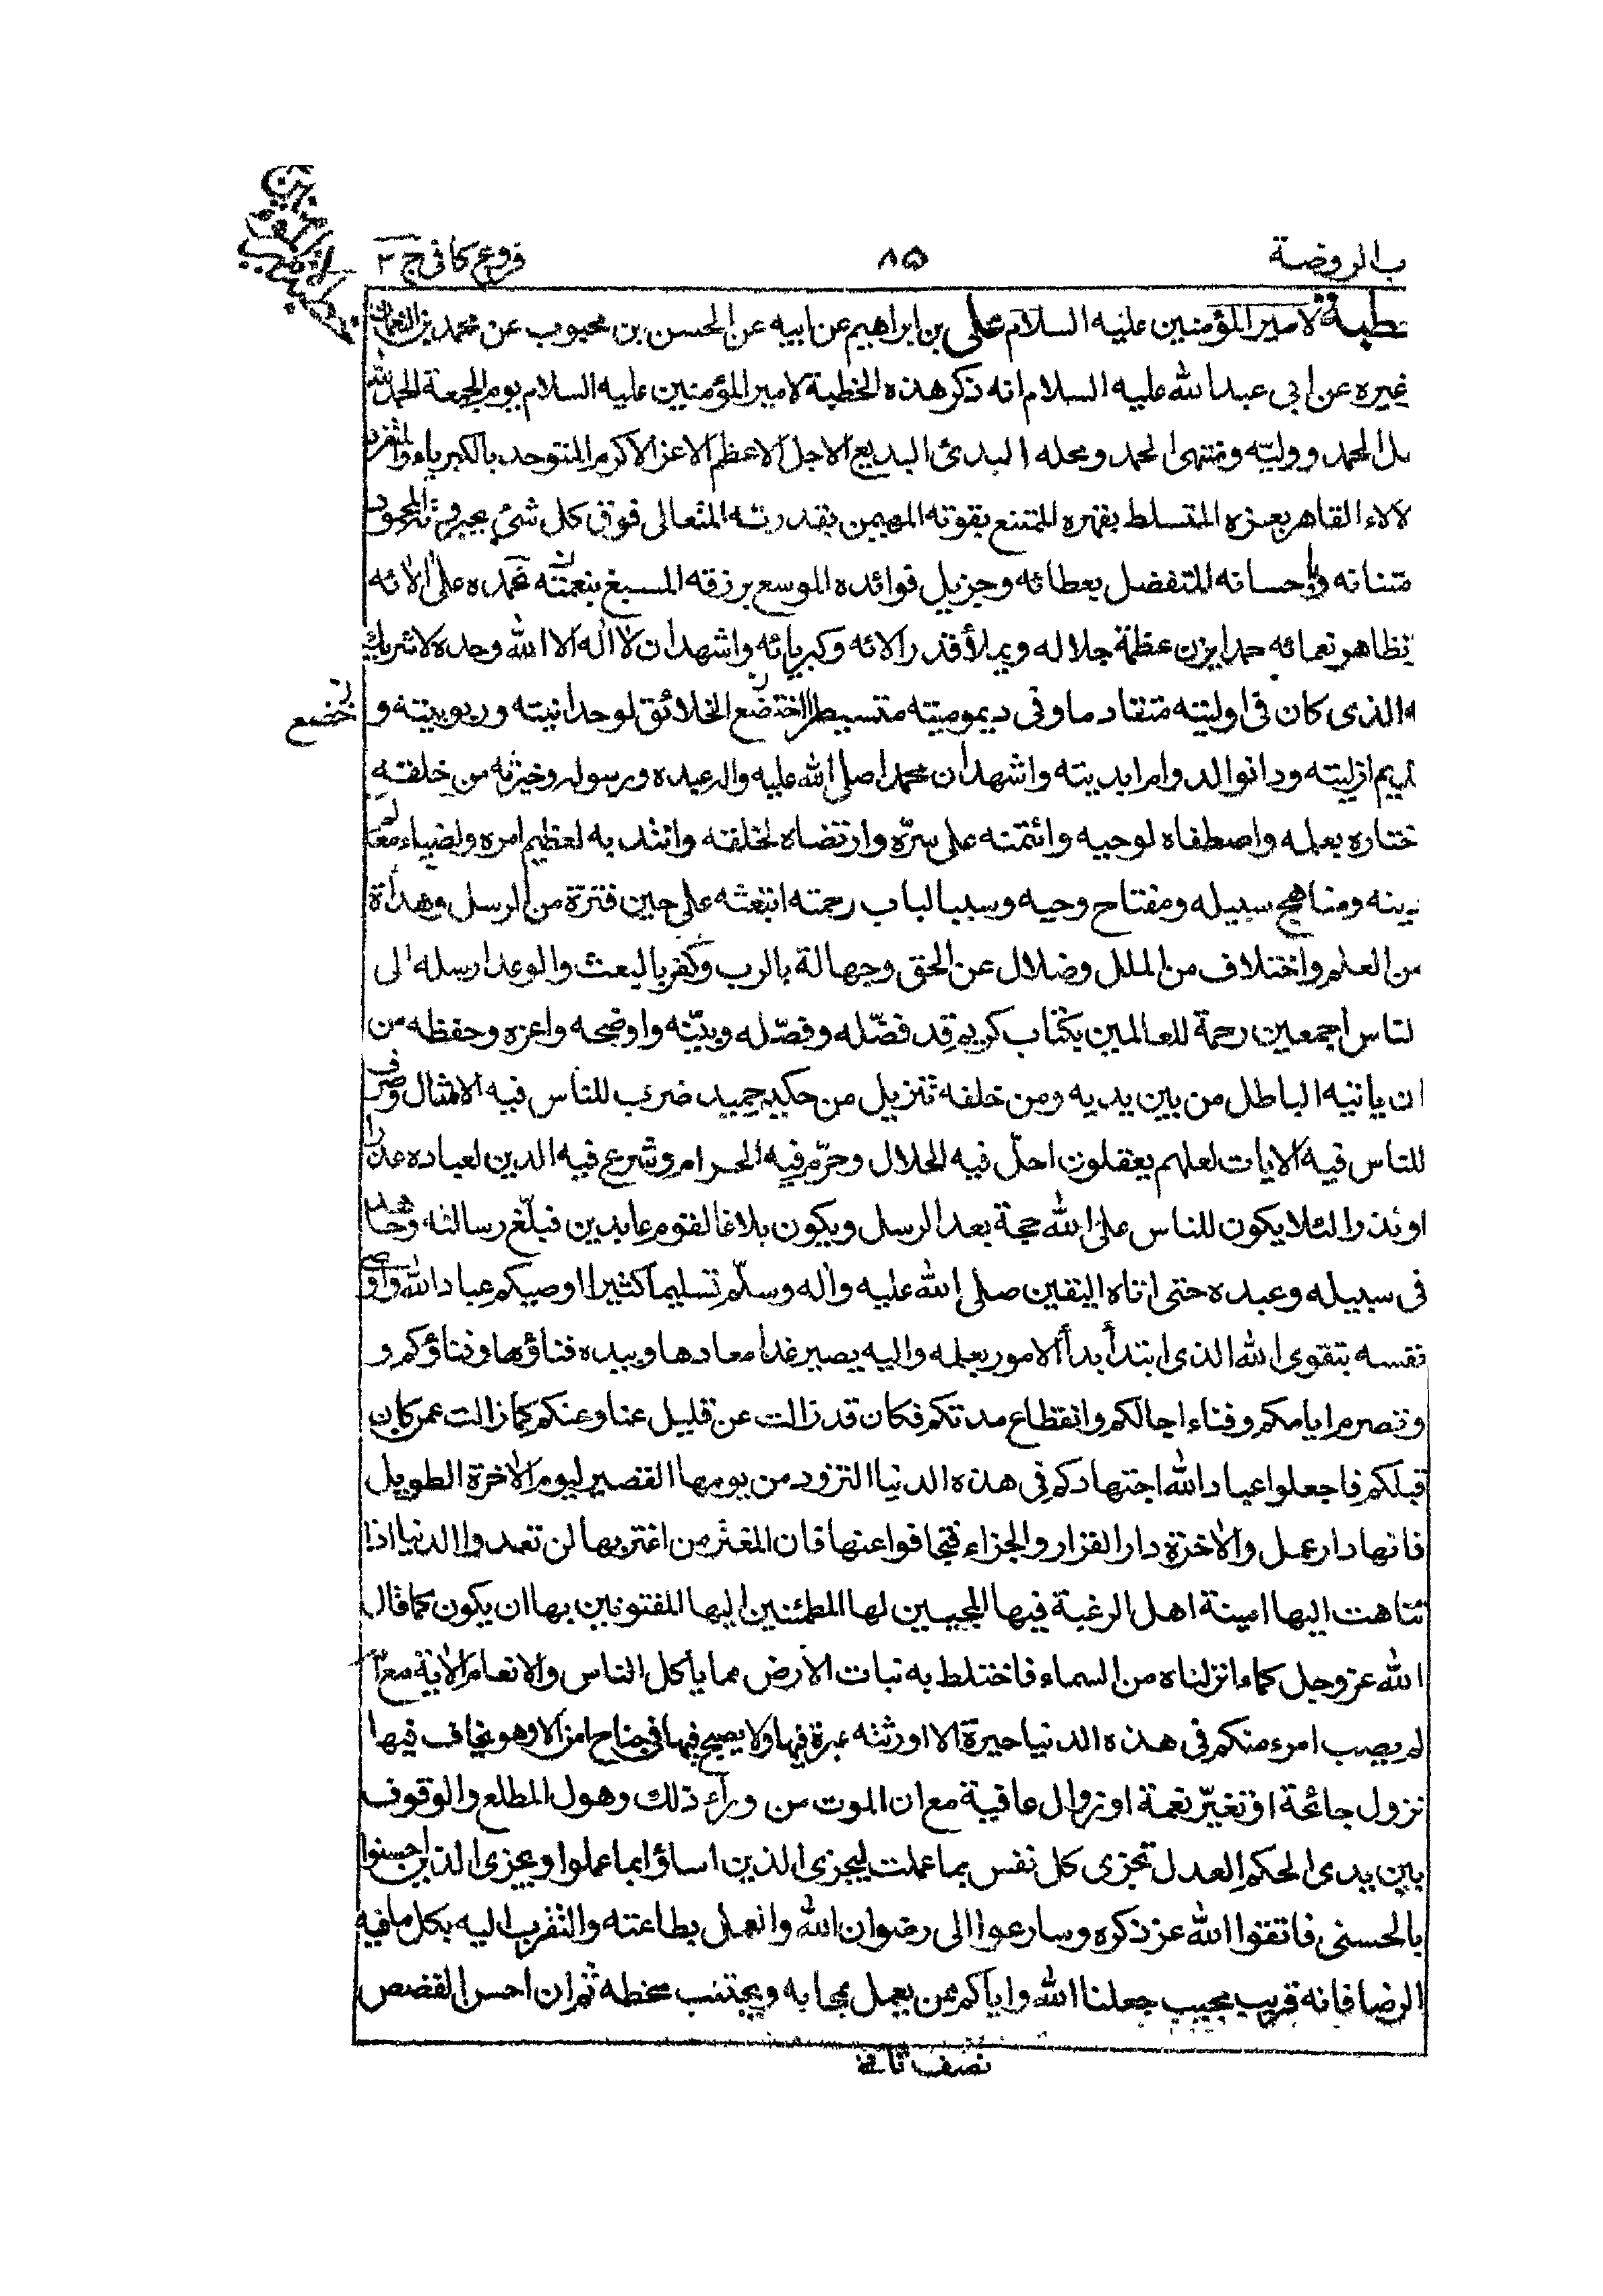 ب الروضة ٨٥ فروع كافى ج ٢
خطبة لامير المؤمنين عليه السلام على بن ابراهيم عن ابيه عن الحسن بن محبوب عن محمد بن النعمان
غيره عن ابى عبد الله عليه السلام انه ذكر هذه الخطبة لامير المؤمنين عليه السلام يوم الجمعة الحمد لله
هل الحمد ووليّه ومنتهى الحمد ومحله البدئ البديع الاجل الاعظم الاعز الاكرم المتوحد بالكبرياء والمتفرد
لالاء القاهر بعزه المتسلط بقهره الممتنع بقوته المهيمن بقدرته المتعالى فوق كل شئ بجبروته المحمود
متنانه وباحسانه المتفضل بعطائه وجزيل فوائده الموسع برزقه المسبغ بنعمته نحمده على الائه
تظاهر نعمائه حمدا يزن عظمة جلاله ويملأ قدر الائه وكبريائه واشهد ان لا اله الا الله وحده لا شريك
ه الذى كان فى اوليته متقادما وفى ديموميته متسيطرا خضع الخلائق لوحدانيته وربوبيته و
تخضع
ديم ازليته ودانوا لدوام ابديته واشهد ان محمدا صلى الله عليه واله عبده ورسوله وخيرته من خلقته
ختاره بعلمه واصطفاه لوحيه وائتمنه على سرّه وارتضاه لخلقه وانتدبه لعظيم امره ولضياء معا
دينه ومناهج سبيله ومفتاح وحيه وسببا لباب رحمته ابتعثه على حين فترة من الرسل وهدأة
من العلم واختلاف من الملل وضلال عن الحق وجهالة بالرب وكفر بالبعث والوعد ارسله الى
لناس اجمعين رحمة للعالمين بكتاب كريم قد فضّله وفصّله وبيّنه واوضحه واعزه وحفظه من
ان ياتيه الباطل من بين يديه ومن خلفه تنزيل من حكيم حميد ضرب للناس فيه الامثال وصرف
للناس فيه الايات لعلهم يعقلون احلّ فيه الحلال وحرّم فيه الحرام وشرع فيه الدين لعباده عذرا
او نذرا لئلا يكون للناس على الله حجة بعد الرسل ويكون بلاغا لقوم عابدين فبلّغ رسالته وجاهد
فى سبيله وعبده حتى اتاه اليقين صلى الله عليه واله وسلّم تسليما كثيرا اوصيكم عباد الله واوصى
نفسه بتقوى الله الذى ابتدأ بدأ الامور بعلمه واليه يصير غدا معادها وبيده فناؤها وفناؤكم و
وتصرم ايامكم وفناء اجالكم وانقطاع مدتكم فكان قد زالت عن قليل عنا وعنكم كما زالت عمن كان
قبلكم فاجعلوا عباد الله اجتهادكم فى هذه الدنيا التزود من يومها القصير ليوم الاخرة الطويل
فانها دار عمل والاخرة دار القرار والجزاء فتجافوا عنها فان المغتر من اغتر بها لن تعدوا الدنيا اذا
تناهت اليها امنية اهل الرغبة فيها المحبين لها المطمئنين اليها المفتونين بها ان يكون كما قال
الله عز وجل كماء انزلناه من السماء فاختلط به نبات الارض مما ياكل الناس والانعام الاية مع انه
لم يصب امرء منكم فى هذه الدنيا حيرة الا اورثته عبرة فيها ولا يصبح فيها فى جناح امن الا وهو يخاف فيها
نزول جائحة او تغيّر نعمة او زوال عافية مع ان الموت من وراء ذلك وهول المطلع والوقوف
بين يدى الحكم العدل تجزى كل نفس بما عملت ليجزى الذين اساؤا بما عملوا ويجزى الذين احسنوا
بالحسنى فاتقوا الله عز ذكره وسارعوا الى رضوان الله والعمل بطاعته والتقرب اليه بكل ما فيه
الرضا فانه قريب مجيب جعلنا الله واياكم ممن يعمل بمحابه ويجتنب سخطه ثم ان احسن القصص
نصف ثانى